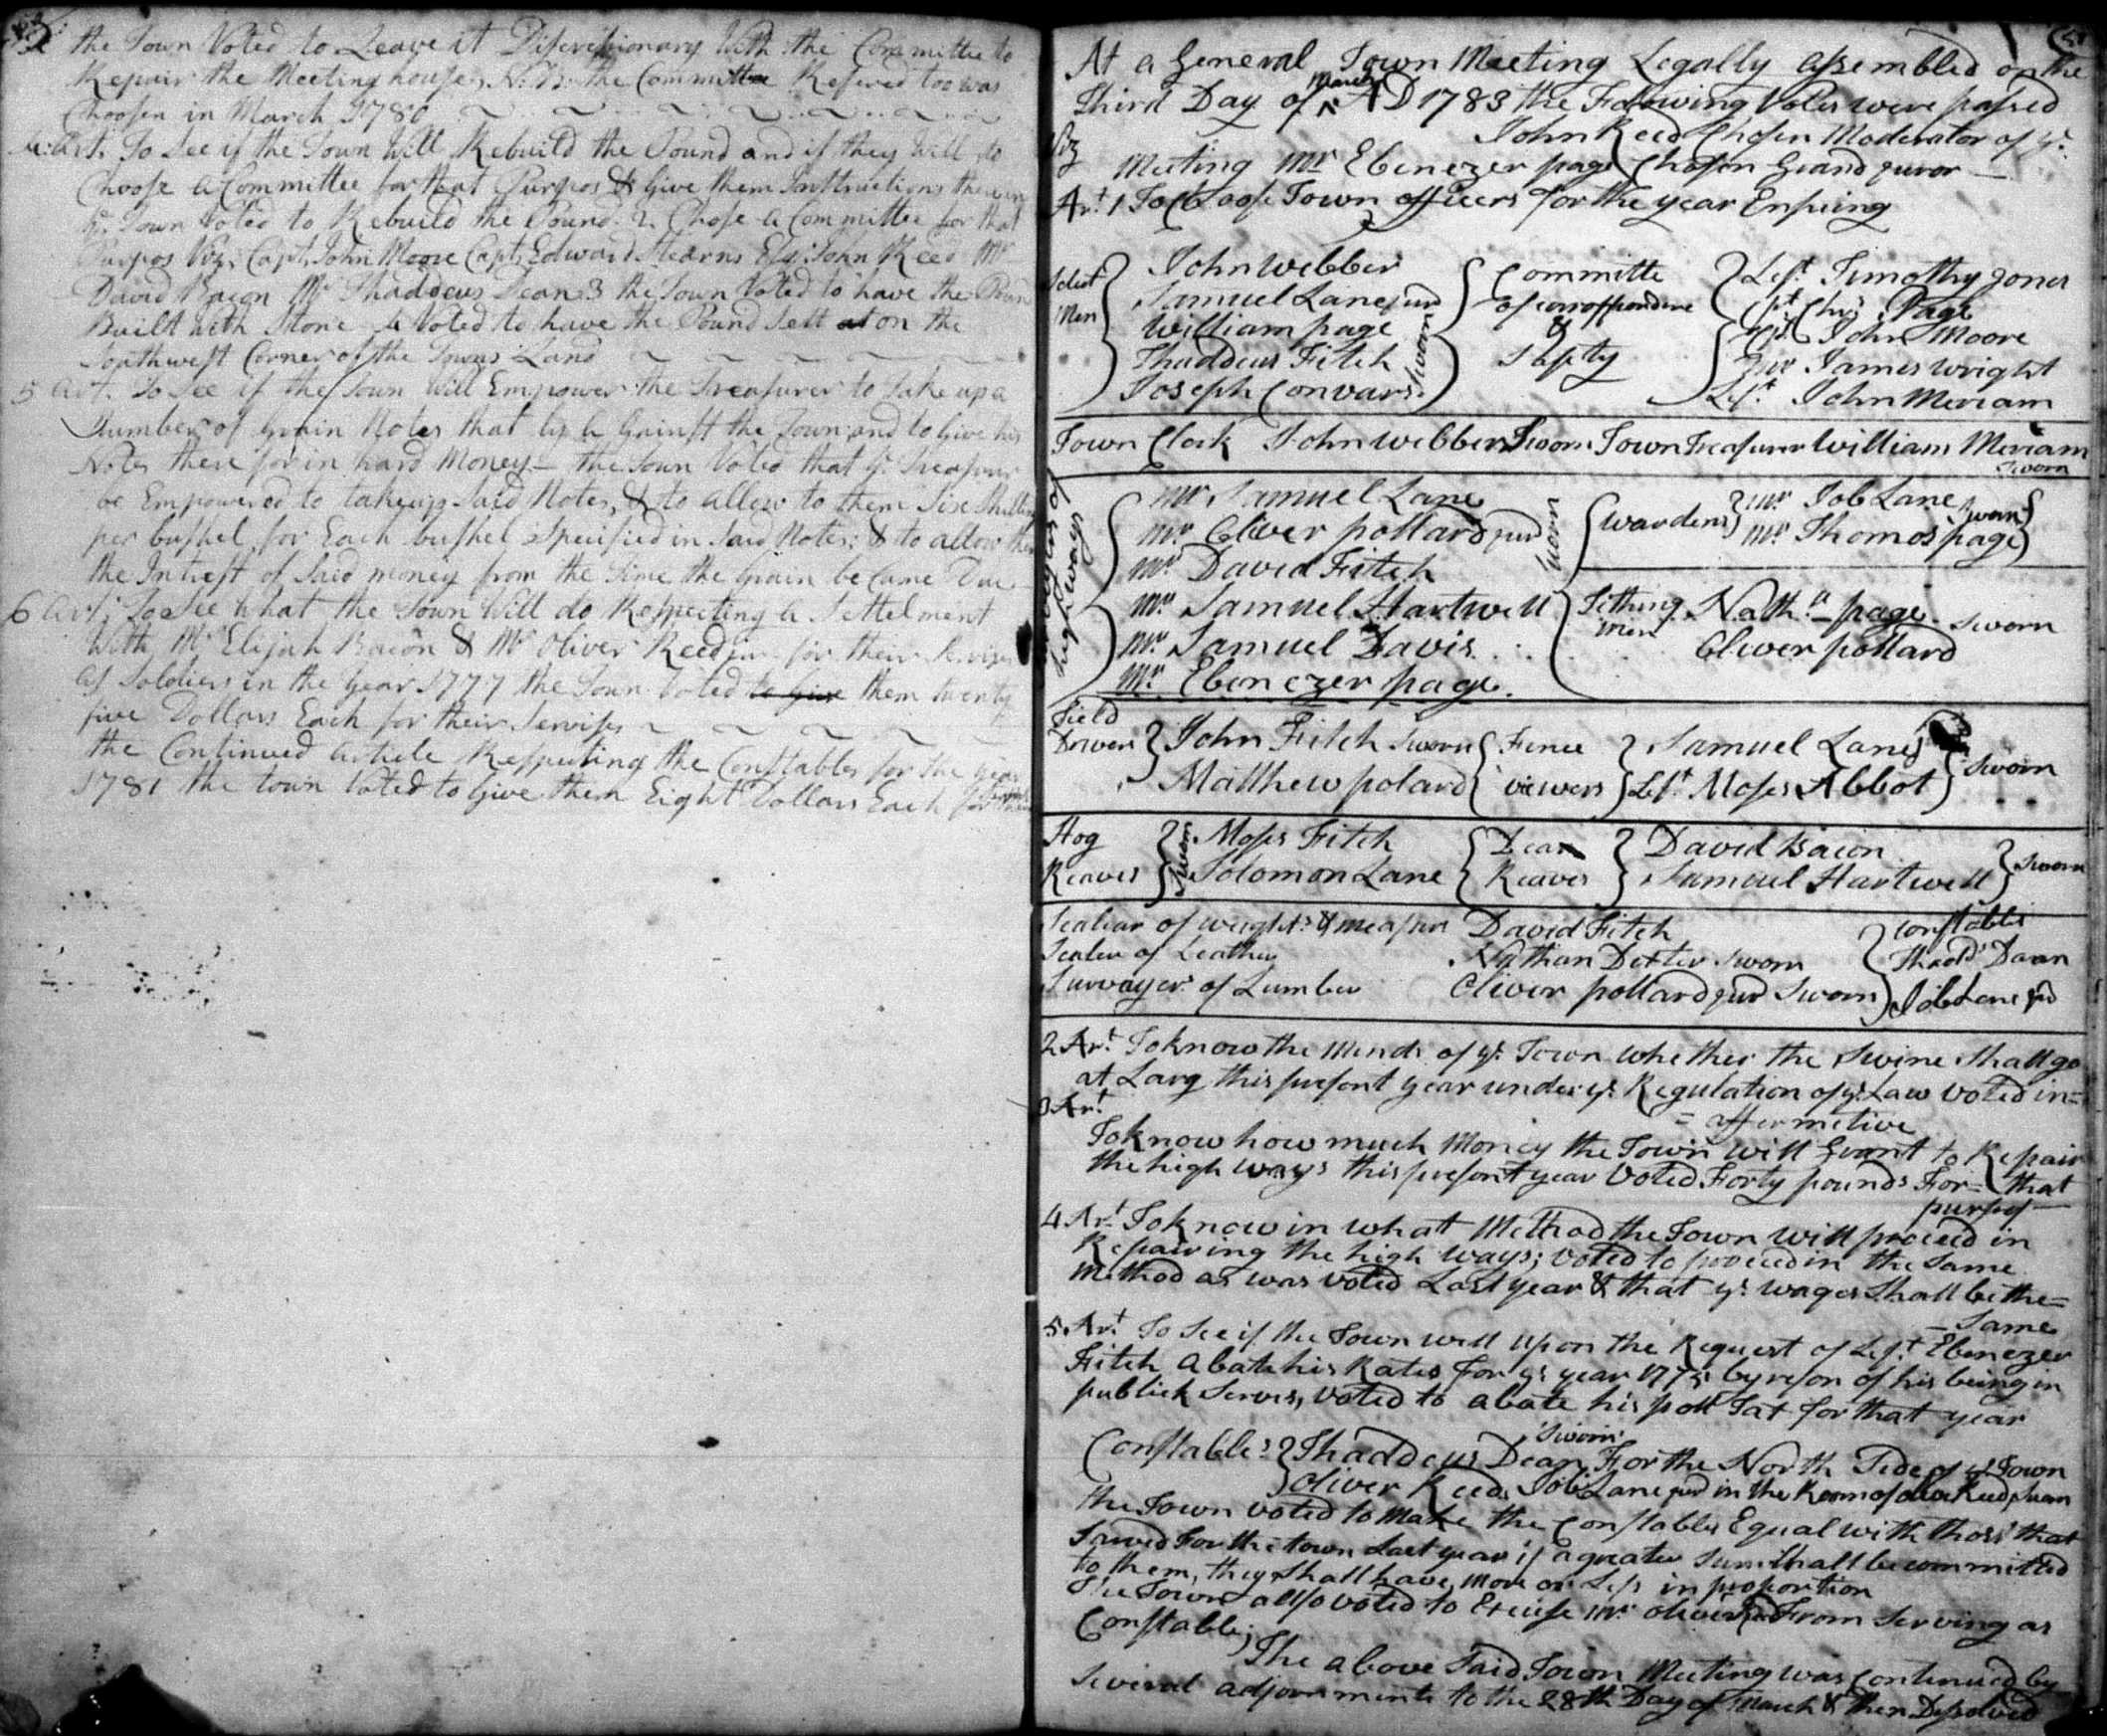 the Town Voted to Leave it Discressionary With the Committee to
Repair the Meeting house, N.B. the Committee Refered too was
Choosen in March 1780
4 Art. To See if the Town Will Rebuild the Pound and if they Will to
Choose a Committee for that Purpos & Give them Instructions therein
ye Town Voted to Rebuild the Pound. 2 Chose a Committee for that
Purpos Viz. Capt. John Moore Capt. Edward Stearns Esq. John Reed Mr
David Bacon Mr Thaddeus Dean 3 the Town Voted to have the Poun
Built with Stone 4 Voted to have the Pound Sett at on the
Southwest Corner of the Towns Land
5 Art. To See if the Town Will Empower the Treasurer to Take up a
Number of Grain Notes that ly a Gainst the Town and to Give his
Notes there for in hard Money - the Town Voted that ye Treasurer
be Empowered to take up Said Notes, & to allow to them Six Shillin
per bushel for Each bushel Specified in Said Notes: & to allow them
the Intrest of Said money from the time the Grain became Due
6 Art. To See What the Town Will do Respecting a Settelment
With Mr Elijah Bacon & Mr Oliver Reed jur for their Servises
as Soldiers in the Year 1777 the Town Voted to give them twenty
five Dollars Each for their Servises
the Continued article Respecting the Constables for the year
1781 the town Voted to Give them Eight Dollars Each for
At a General Town Meeting Legally assembled on the
Third Day of March AD 1783 the Following Votes were passed
Viz John Reed Chosen Moderator of ye
Meeting Mr Ebenezer page Chosen Grand juror
Art 1 To Choose Town officers for the year Ensuing
Select Men John Webber
Samuel Lane jund
William page
Thaddeus Fitch
Joseph Convars Sworn
Committe of corrospondence & Safity
Left Timothy Jones
Chrs Page
Capt. John Moore
James Wright
Left John Meriam
Town Clark John Webber Sworn Town Treasurer William Meriam Sworn
Survayers of highways
Mr Samuel Lane
Mr Oliver pollard jund
Mr David Fitch
Mr Samuel Hartwell
Mr Samuel Davis
Mr Ebenezer page
Sworn
Wardens Mr Job Lane
Mr Thomos page Sworn
Tithing men Nathll page Sworn
Oliver pollard
Field Drivers John Fitch Sworn
Matthew polard
Fence viewers Samuel Lane
Left Moses Abbot Sworn
Hog Reaves Sworn Moses Fitch
Solomon Lane
Dear Reaves David Bacon
Samuel Hartwell Sworn
Sealear of weights & measure David Fitch
Sealer of Leather Nathan Dexter Sworn
Survayer of Lumber Oliver pollard jund Sworn
constable
Thadd Daan
Job Lane jnd
2 Art To know the minds of ye Town whether the Swine Shall go
at Larg this present year under ye Regulation of ye Law Voted in=
= affermetive
3 Art
To know how much Money the Town will Grant to Repair
the high ways this present year Voted Forty pounds For= that
purpos
4 Art To know in what Method the Town will proceed in
Repairing the high ways; Voted to proceed in the Same
Method as was voted Last year & that ye wages Shall be the=
= Same
5 Art To See if the Town will upon the Request of Left Ebenezer
Fitch Abate his Rates for ye year 1775 by reson of his being in
publick Serves, Voted to abate his poll Tax for that year
Sworn
Constables Thaddeus Dean For the North Side of ye Town
Oliver Reed. Job Lane jund in the Room of oliver Reed Sworn
the Town voted to Make the Constables Equal with thoss that
Sarved For the town Last year if a greater Sum Shall be committed
to them, they Shall have, More or Less in proportion
The Town allso voted to Excuse Mr oliver Reed From Serving as
Constable;
The above Said Town Meeting was Continued by
Several adjournments to the 28th Day of March & then Desolved